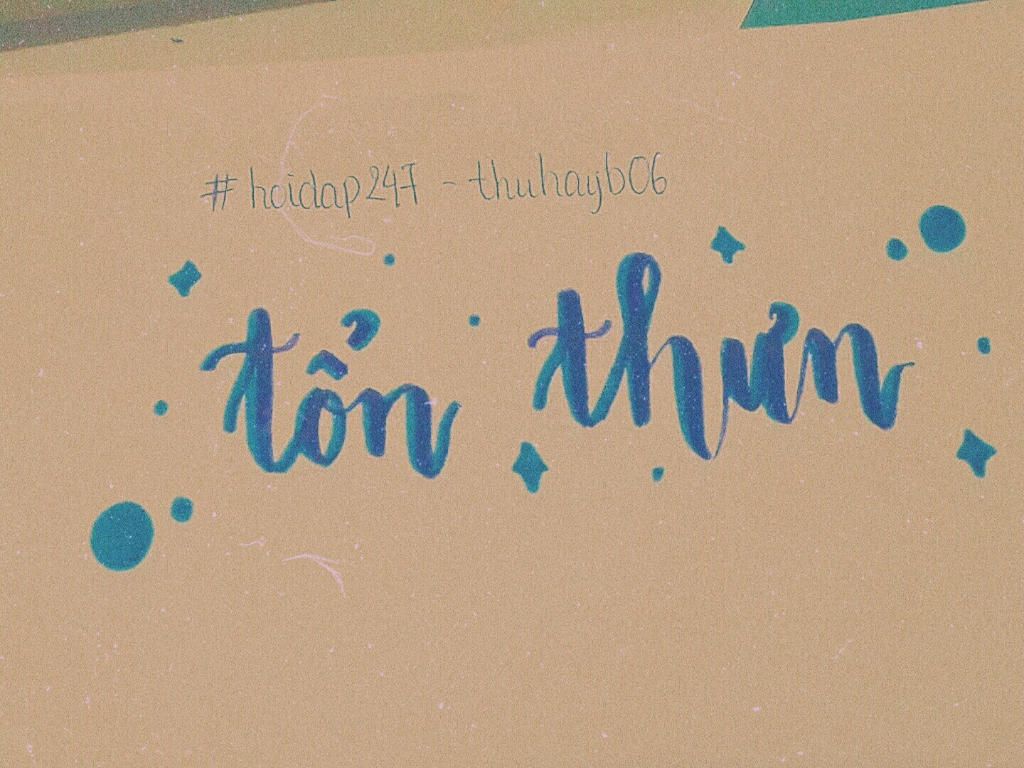 #hoidap247 - thuhayb06
tổn thưn